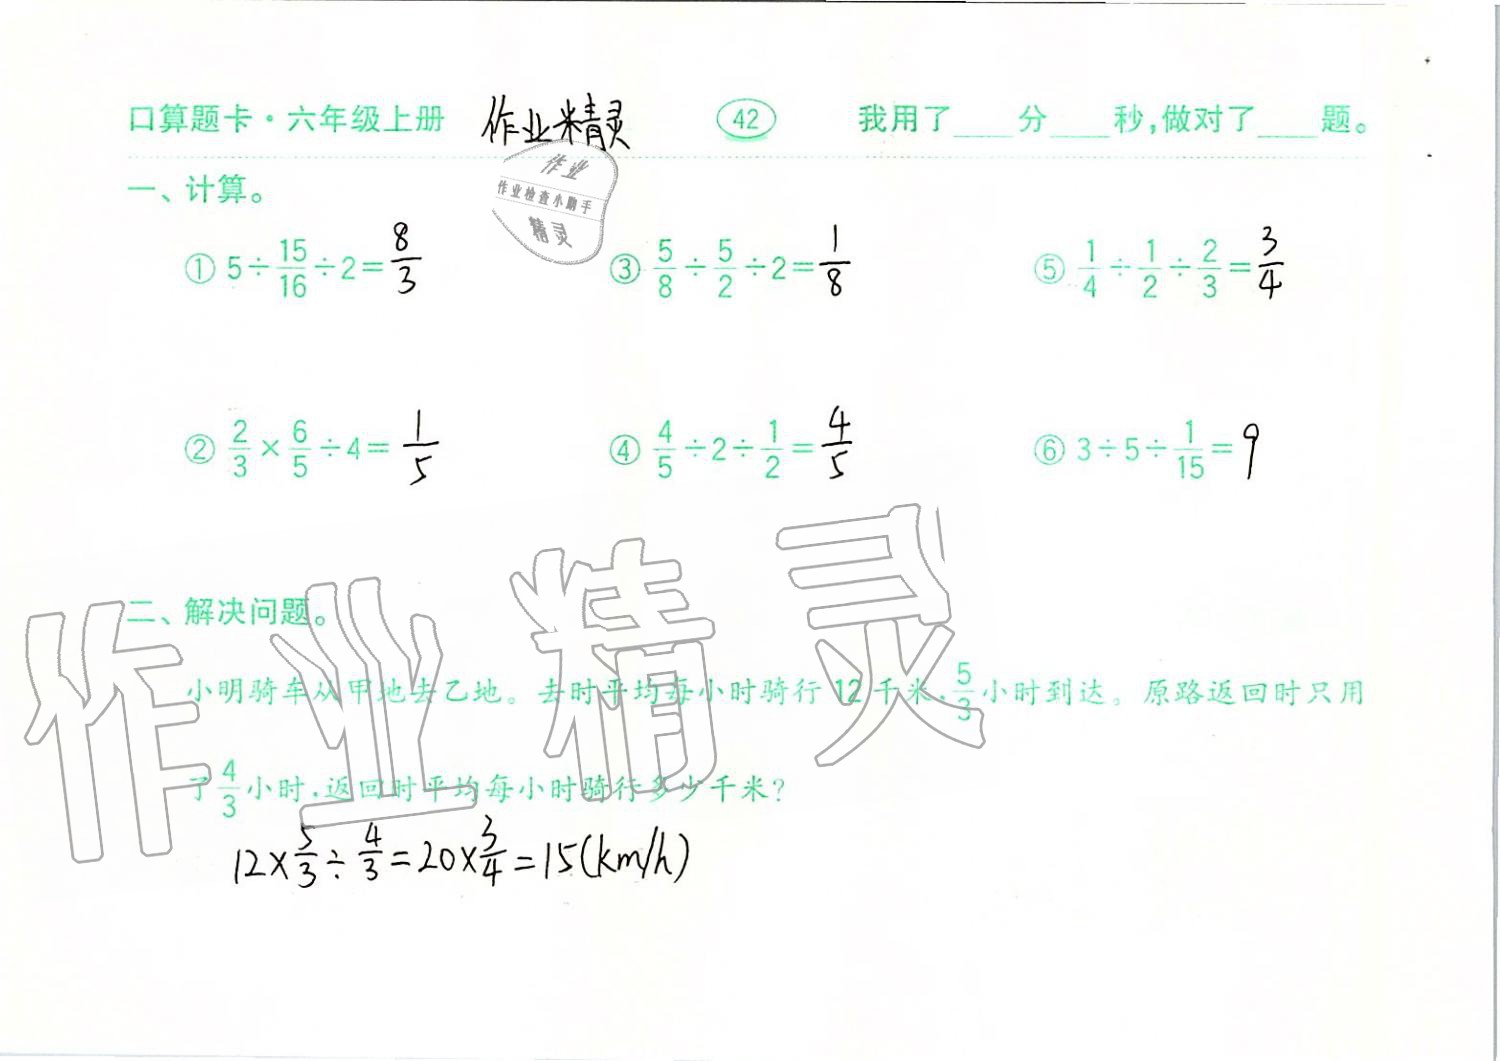 口算题卡·六年级上册 作业精灵 42 我用了____分____秒,做对了____题。
作业
作业检查小助手
精灵
一、计算。
① 5÷15/16÷2=8/3 ③ 5/8÷5/2÷2=1/8 ⑤ 1/4÷1/2÷2/3=3/4
② 2/3×6/5÷4=1/5 ④ 4/5÷2÷1/2=4/5 ⑥ 3÷5÷1/15=9
作业精灵
二、解决问题。
小明骑车从甲地去乙地。去时平均每小时骑行12千米,5/3小时到达。原路返回时只用
了4/3小时,返回时平均每小时骑行多少千米?
12×5/3÷4/3=20×3/4=15(km/h)